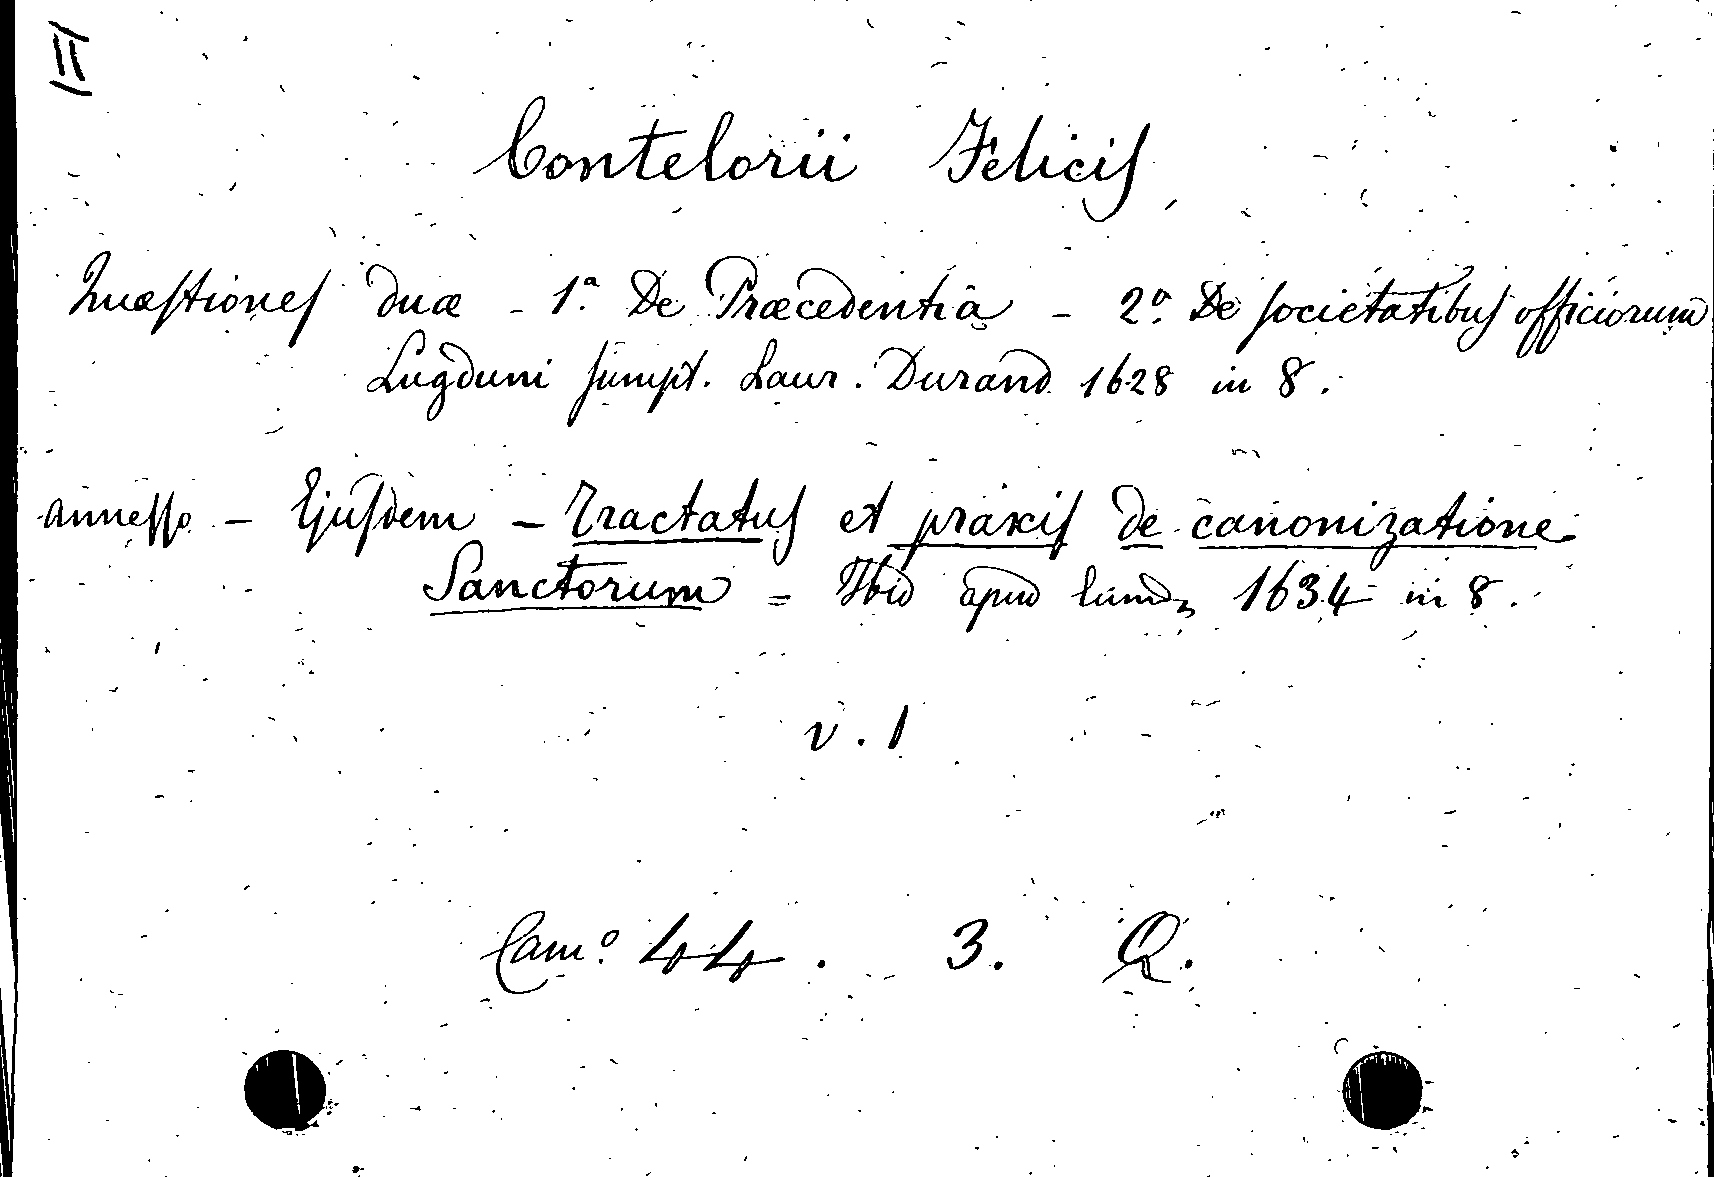 II
Contelorii Felicis
Quæstiones duæ - 1.ª De Præcedentiâ - 2.º De societatibus officiorum
Lugduni sumpt. Laur. Durand 1628 in 8.
annesso - Ejusdem - Tractatus et praxis de canonizatione
Sanctorum = Ibid apud eumd 1634 in 8.
v. 1
Cam.º 44. 3. Q.